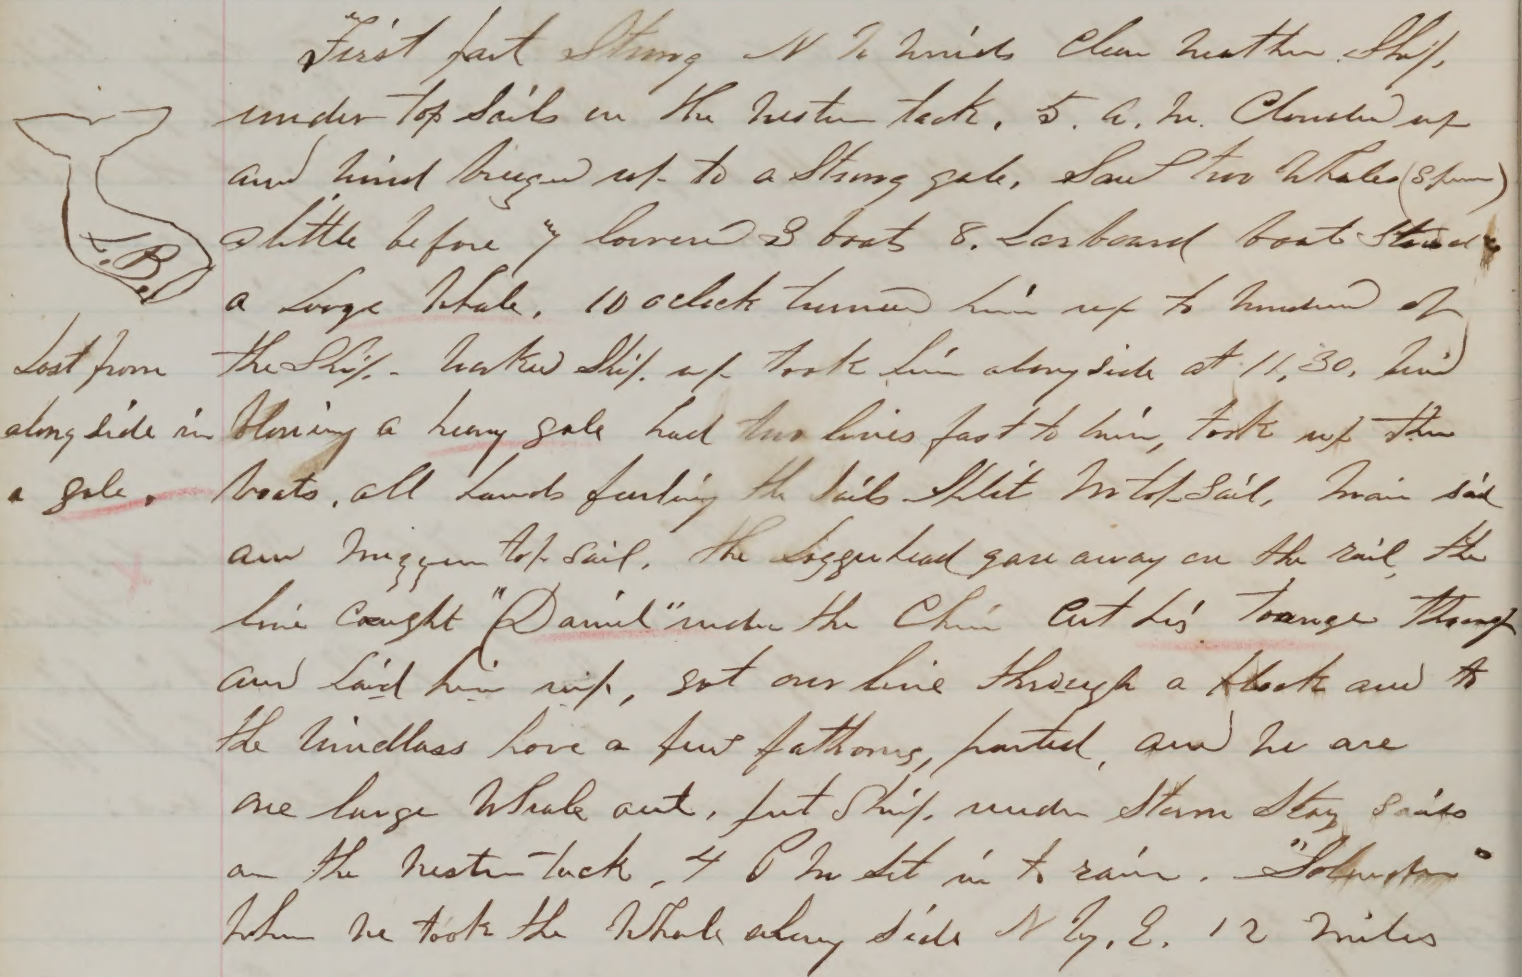 First part Strong N W winds Clear weather. Ship.
under top Sails on the western tack. 5. a. m. Clouded up
and wind breezed up to a Strong gale. Saw two Whales (Sperm)
a little before 7 lowered 3 boats 8. Larboard boat Struck
L.B.
a Large Whale. 10 oclock turned him up to windward of
Lost from
the Ship. worked Ship. up took him alongside at 11,30. wind
along side in
blowing a heavy gale had two lines fast to him, took up the
a gale.
boats. all hands furling the Sails Split M top-Sail, Main sail
and Mizzen top-sail. the Loggerhead gave away on the rail, the
line caught "Daniel" under the Chin Cut his tounge through
and Laid him up, got our line through a block and to
the windlass hove a few fathoms, parted, and we are
one large Whale out. put Ship. under Storm Stay sails
on the western tack. 4 P M Set in to rain.
When we took the Whale along side N by. E. 12 miles